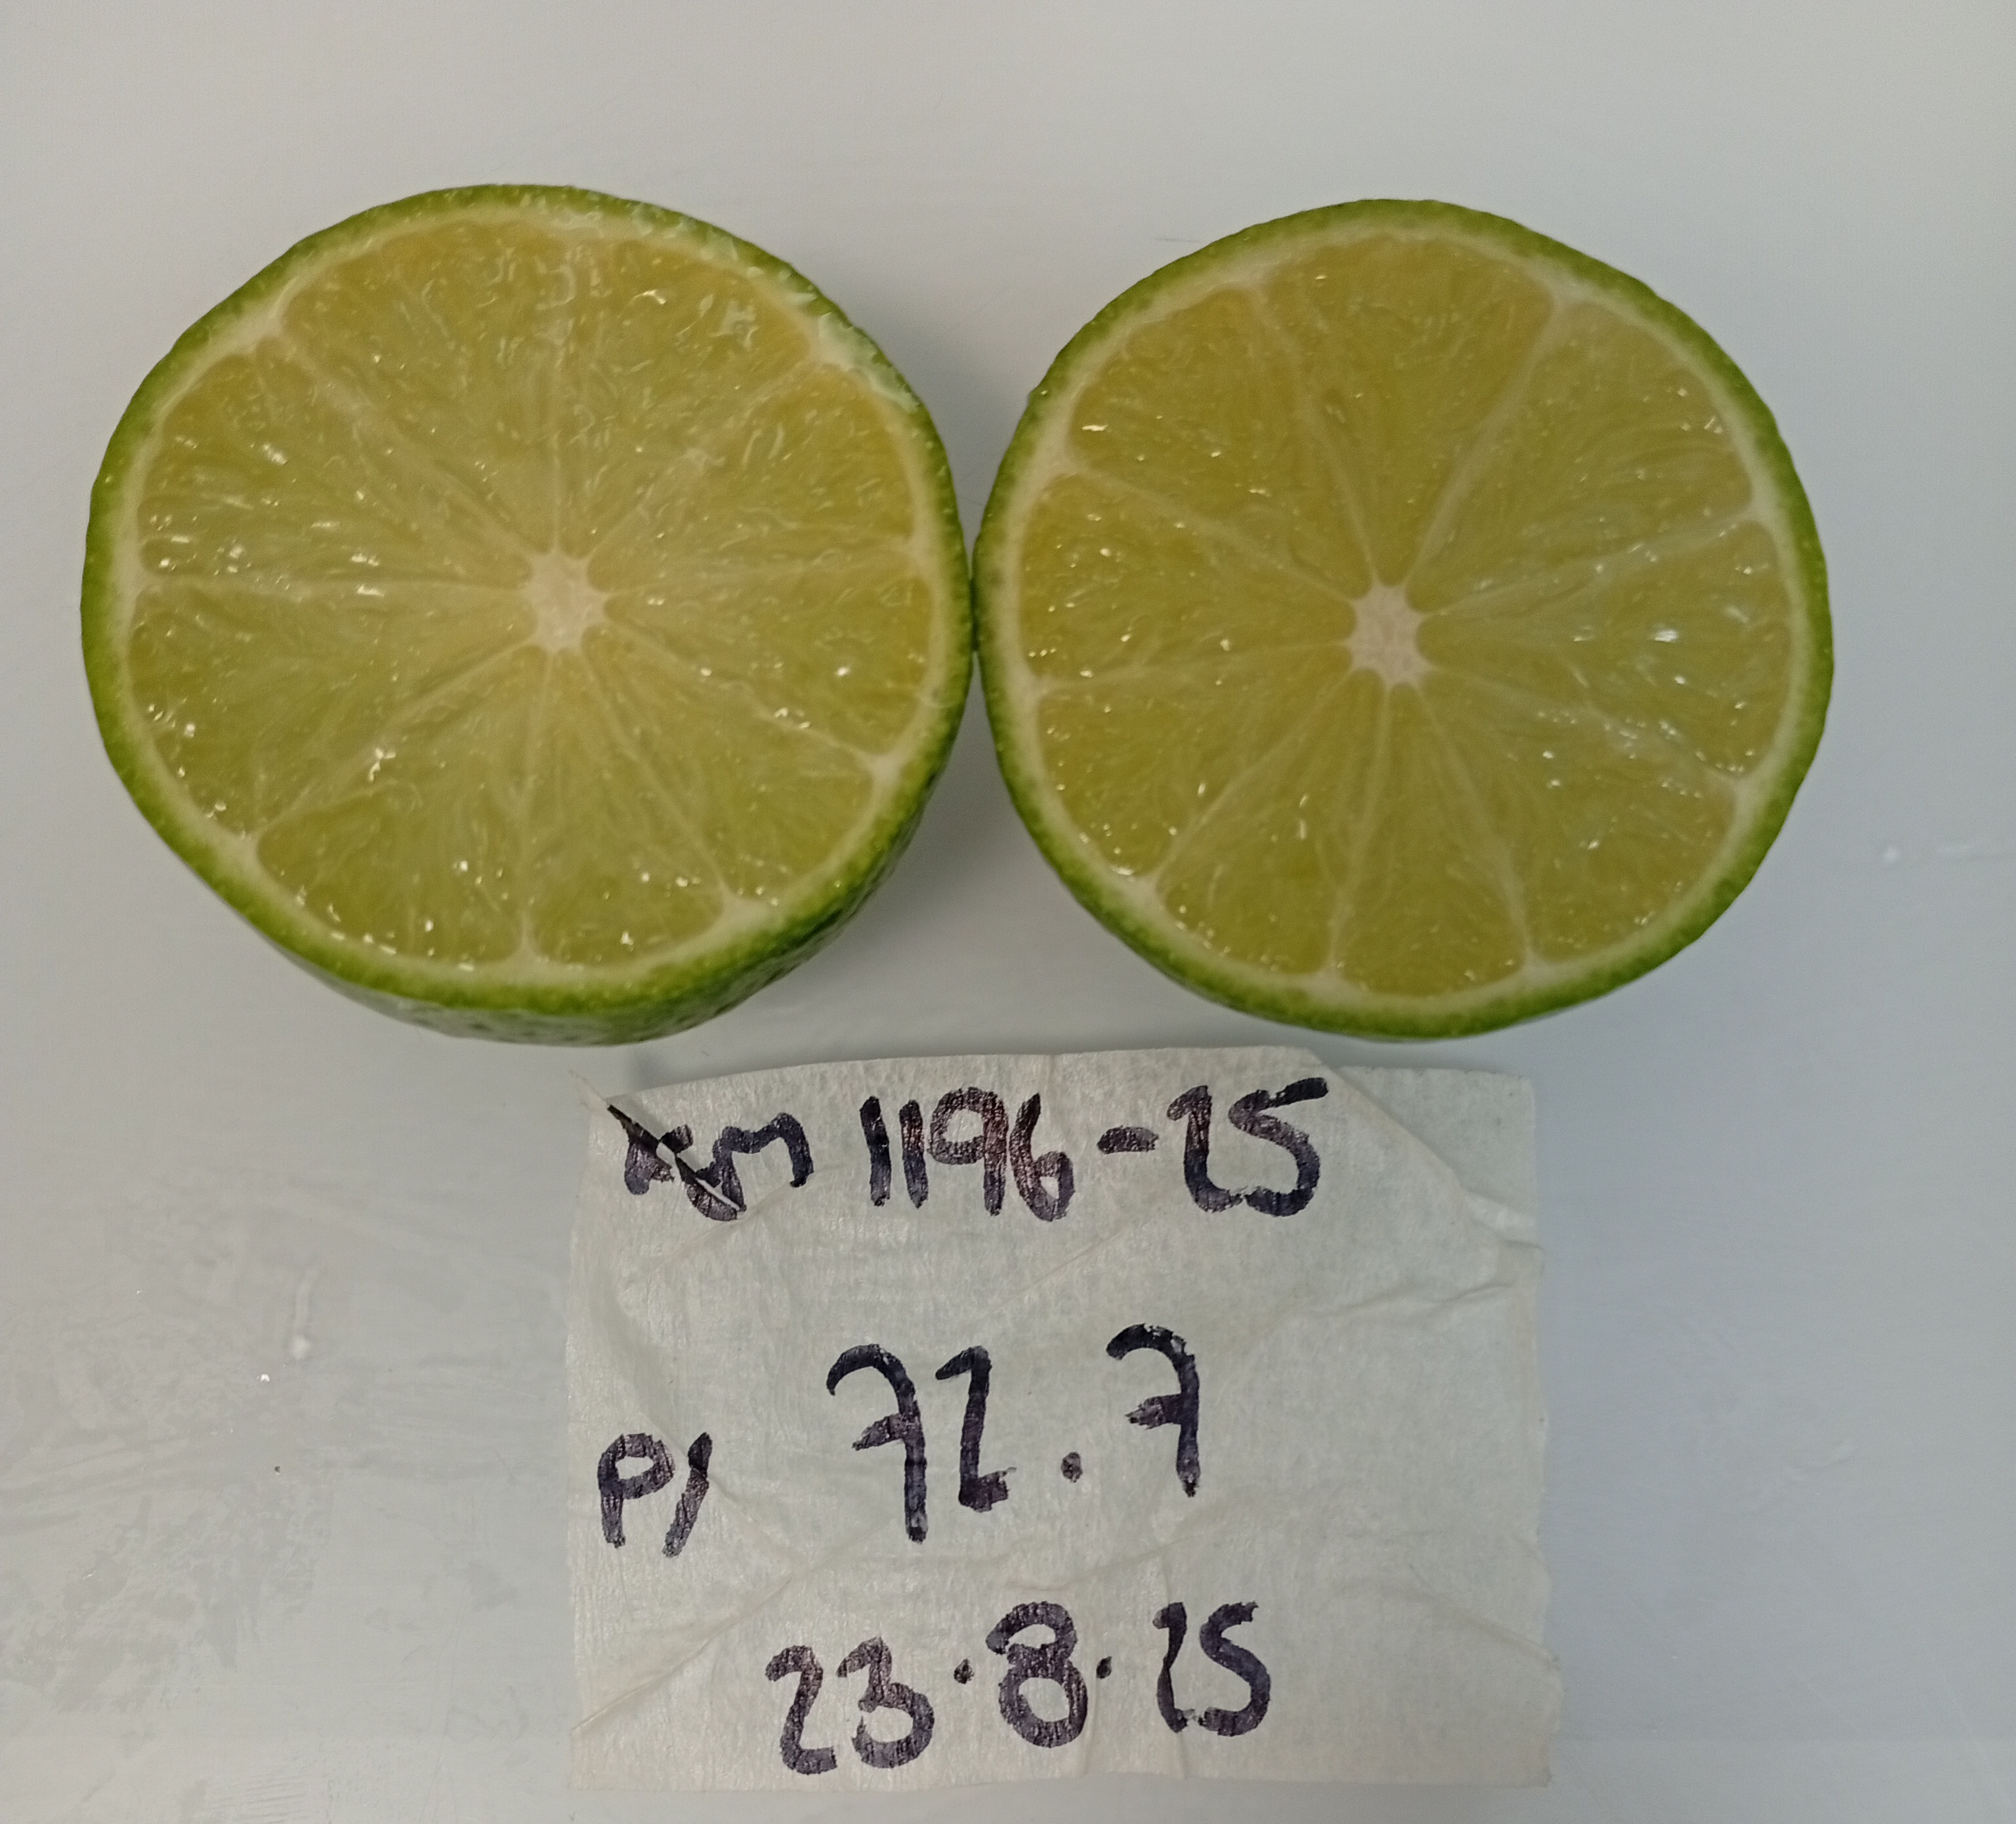 1196-25
P/ 72.7
23.8.25